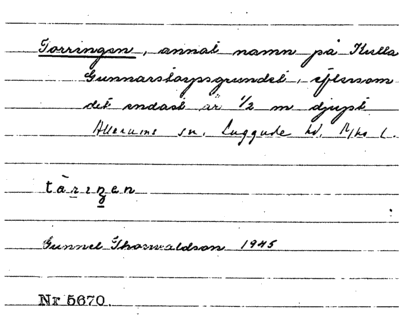 Torringen, annat namn på Kulla
Gunnarstorpsgrundet, eftersom
det endast är ½ m djupt.
Allerums sn. Luggude hd. Mhs l.
tàringen
Gunnel Thorwaldson 1945
Nr 5670